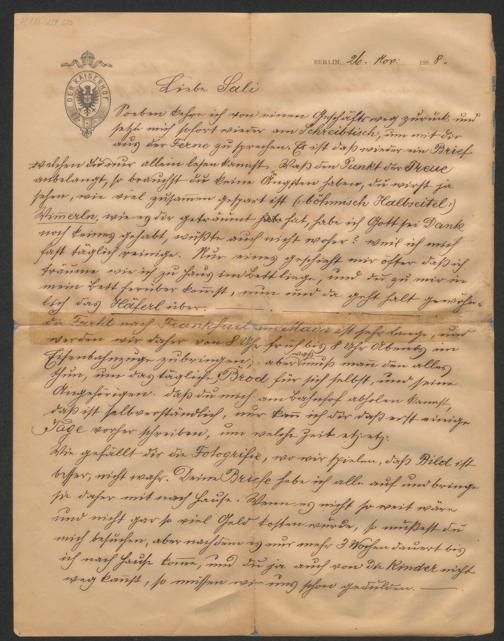 H.I.N. 129 220
DER KAISERHOF
BERLIN, 26. Nov. 1888.
Liebe Sali
Soeben kehre ich von einen Geschäftsweg zurück und
setze mich sofort wieder am Schreibtisch, um mit dir
aus der Ferne zu sprechen. Es ist daß wieder ein Brief
welchen du nur allein lesen kannst. Waß den Punkt der Treue
anbelangt, so brauchst du keine Ängsten haben, du wirst ja
sehen, wie viel zusamen gespart ist (:böhmisch Halbseitel:)
Wimerln, wie es dir geträumt hat, habe ich Gott sei Dank
noch keines gehabt, wüßte auch nicht woher? weil ich mich
fast täglich reinige. Nur eines geschieht mir öfter daß ich
träume wie ich zu Haus im Bett liege, und du zu mir in
mein Bett herüber kommst, nun und da geht halt gewöhn-
lich das Häferl über.
die Fahrt nach Frankfurt am Main ist sehr lange, und
werden wir daher von 8 Uhr früh bis 8 Uhr Abends im
Eisenbahnzuge zubringen, aber was muß man den alles
thun, um das tägliche Brod für sich selbst, und seine
Angehörigen. daß du mich am Bahnhof abholen kannst,
daß ist selbverständlich, nur kann ich dir daß erst einige
Tage vorher schreiben, um welche Zeit etz. etz.
Wie gefällt dir die Fotografie, wo wir spielen, daß Bild ist
besser, nicht wahr. Deine Briefe hebe ich alle auf und bringe
sie daher mit nach Hause. Wenn es nicht so weit wäre
und nicht gar so viel Geld kosten würde, so müßest du
mich besuchen, aber nachdem es nur mehr 3 Wochen dauert bis
ich nach Hause komme, und du ja auch von die Kinder nicht
weg kannst, so müssen wir uns schon gedulden. —